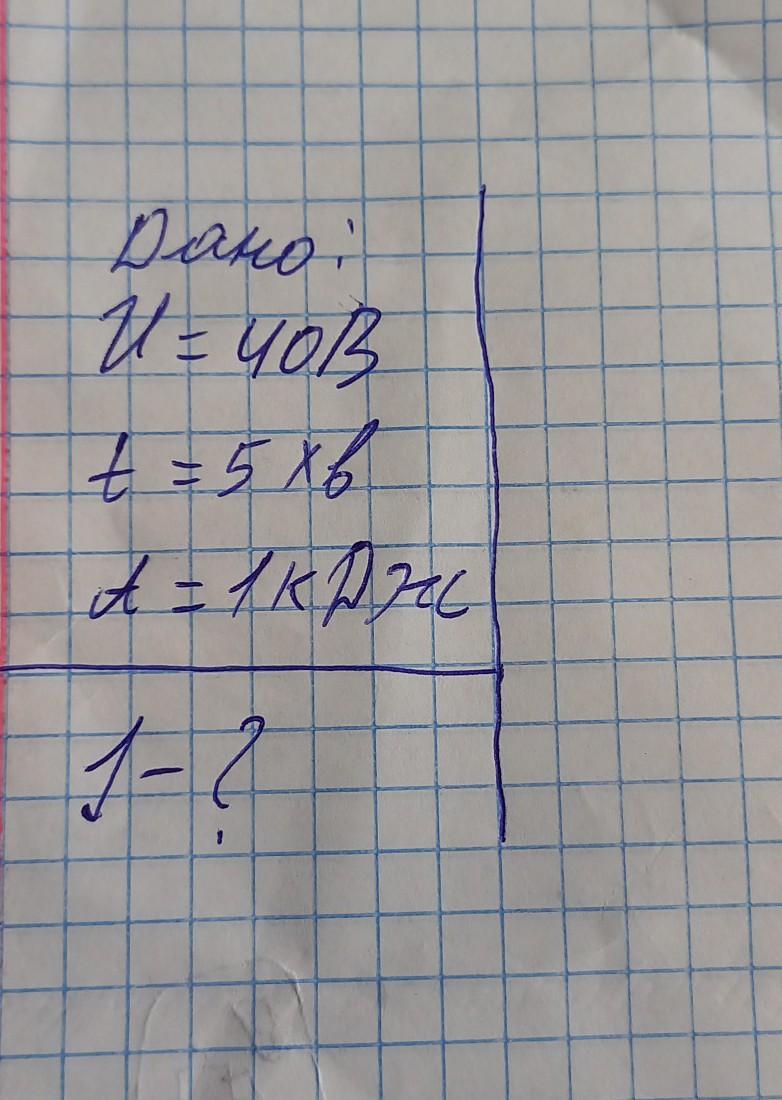 Дано:
U = 40В
t = 5 хв
A = 1кДж
I - ?